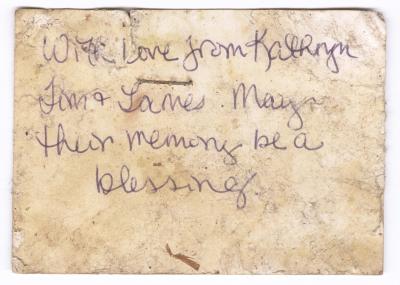 With Love from Kathryn
Tim & James. May
their memory be a
blessing.